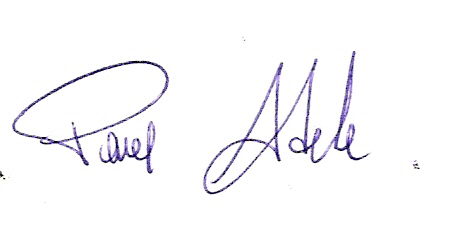 Pavel Adele